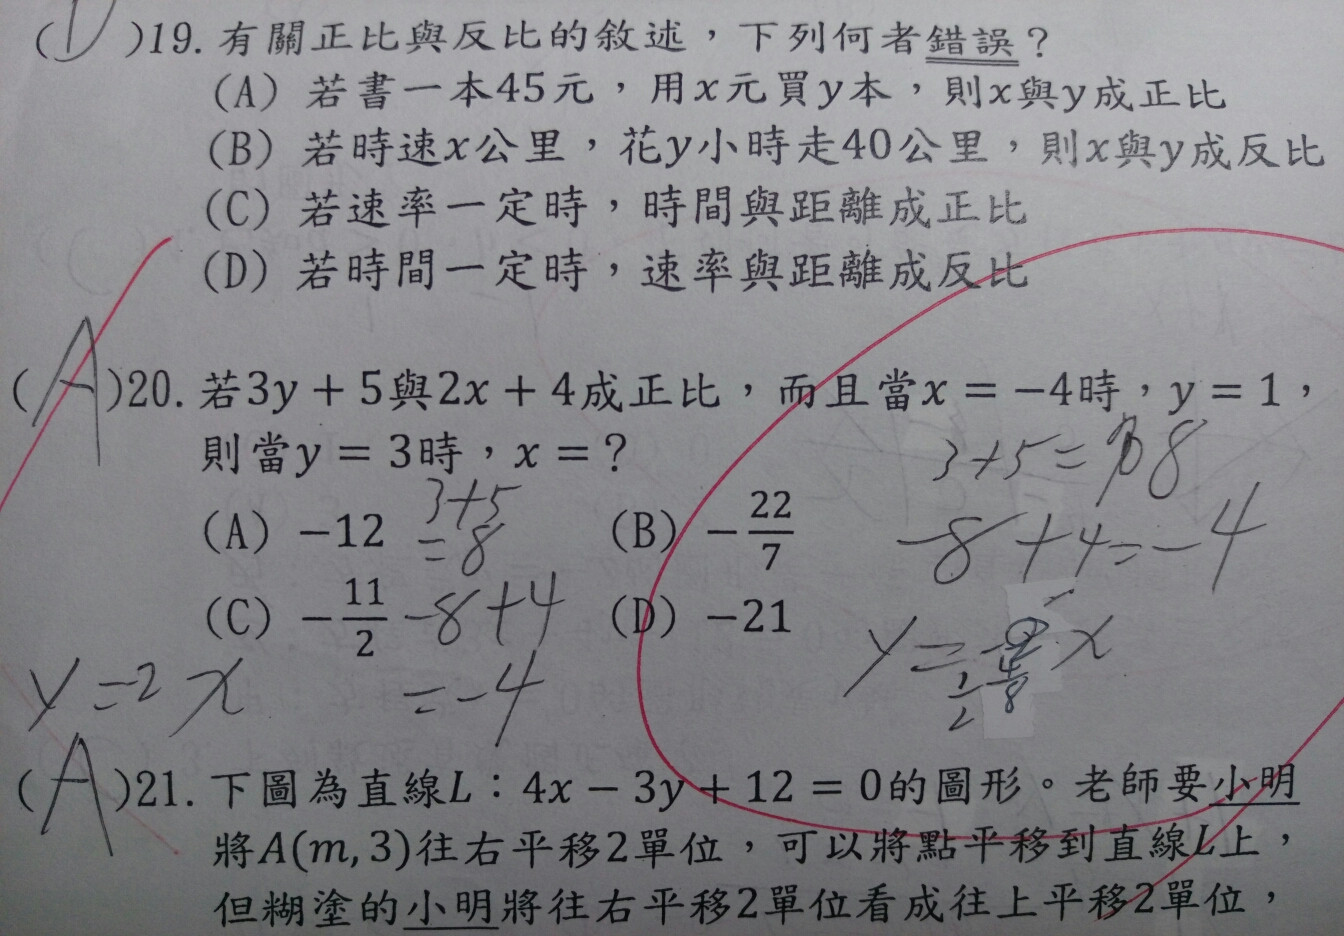 (D)19. 有關正比與反比的敘述，下列何者錯誤？
(A) 若書一本45元，用x元買y本，則x與y成正比
(B) 若時速x公里，花y小時走40公里，則x與y成反比
(C) 若速率一定時，時間與距離成正比
(D) 若時間一定時，速率與距離成反比
(A)20. 若3y + 5與2x + 4成正比，而且當x = −4時，y = 1，
則當y = 3時，x = ?
3+5= 8
(A) −12
3+5
=8
(B) −22/7
-8+4=-4
(C) −11/2
-8+4
=-4
(D) −21
y=2x
(A)21. 下圖為直線L：4x − 3y + 12 = 0的圖形。老師要小明
將A(m, 3)往右平移2單位，可以將點平移到直線L上，
但糊塗的小明將往右平移2單位看成往上平移2單位，